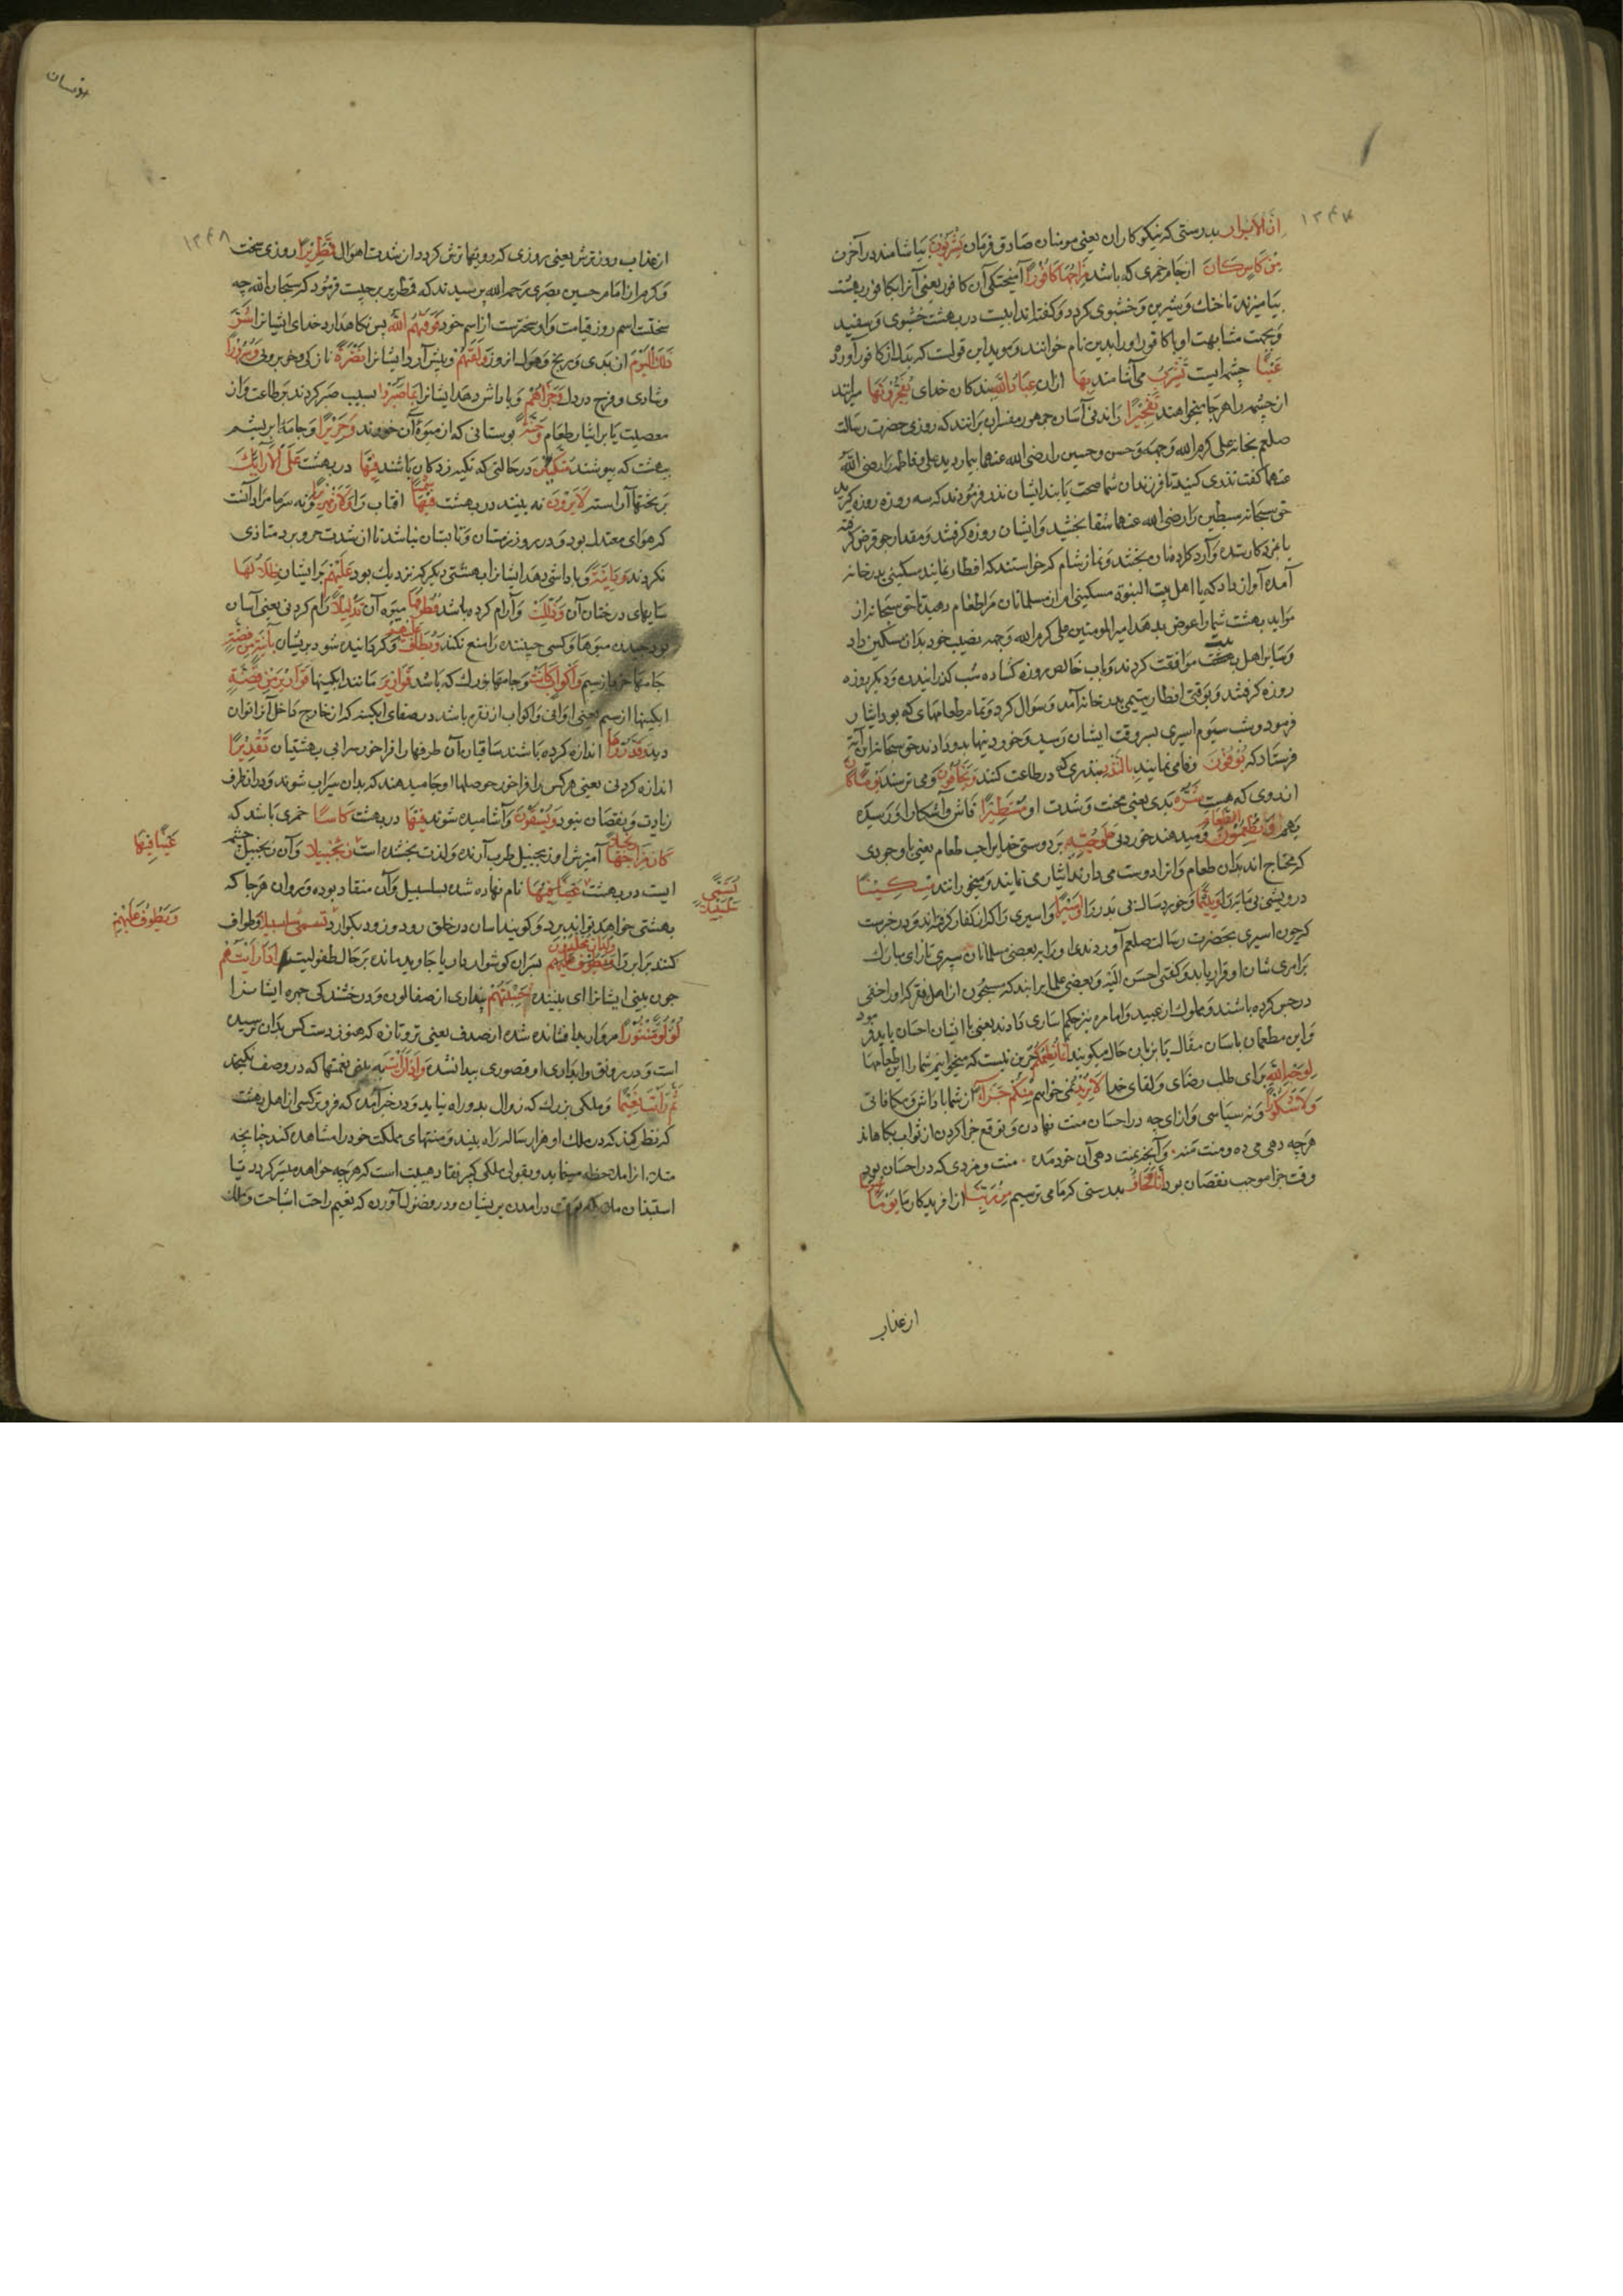 ۱۲۴۷
اِنَّ الْاَبْرَارَ بدرستی که نیکوکاران یعنی مومنان صادق فرمان یَشْرَبُوْنَ بیاشامند در آخرت
مِنْ کَاْسٍ کَانَ از جام خمری که باشد مِزَاجُهَا کَافُوْرًا آمیختگی آن کافور یعنی آنرا بکافور بهشت
بیامیزند تا خنک و شیرین و خشبوی کردد و کفته اند ابیست در بهشت خشبوی و سفید
و بجهت مشابهت او با کافور او را بدین نام خوانند و موید این قولست که بدل از کافور آورد
عَیْنًا چشمه ایست یَشْرَبُ می آشامند بِهَا ازان عِبَادُ اللّٰهِ بندکان خدای یُفَجِّرُوْنَهَا میرانند
ان چشمه را هر جا میخواهند تَفْجِیْرًا راندنی آسان جمهور مفسران برانند که روزی حضرت رسالت
صلعم بخانه علی کرم الله وجهه و حسن و حسین را رضی الله عنهما بیمار دید علی و فاطمه را رضی الله
عنهما کفت نذری کنید تا فرزندان شما صحت یابند ایشان نذر فرمودند که سه روزه روزه کیرند
حق سبحانه سبطین را رضی الله عنهما شفا بخشید و ایشان روزه کرفتند و مقدار جو قرض کرفته
یا بمزد کار بستده و آرد کرده نان پختند و نماز شام که خواستند که افطار نمایند مسکینی بدر خانه
آمده آواز داد که یا اهل بیت النبوة مسکینی ام از مسلمانان مرا طعام دهید تا حق سبحانه از
مواید بهشت شما را عوض بدهد امیر المومنین علی کرم الله وجهه نصیب خود بدان مسکین داد
و سایر اهل بیت موافقت کردند و باب خالص روزه کشاده شب کذرانیدند و دیکر روز
روزه کرفتند و بوقت افطار یتیمی بدر خانه آمد و سوال کرد و تمام طعامهای که بود ایثار
فرمود و شب سیوم اسیری بسر وقت ایشان رسید و خوردنیها بدو دادند حق سبحانه این آیة
فرستاد که یُوْفُوْنَ وفا می نمایند بِالنَّذْرِ بنذری که در طاعت کنند وَیَخَافُوْنَ و می ترسند یَوْمًا کَانَ
از روزی که هست شَرُّهٗ بدی یعنی محنت و شدت او مُسْتَطِیْرًا فاش و آشکارا و رسیده
بهمه وَیُطْعِمُوْنَ الطَّعَامَ و میدهند خوردنی عَلٰی حُبِّهٖ بر دوستی خدا یا بر حب طعام یعنی با وجودی
که محتاج اند بدان طعام و انرا دوست می دارند ایثار می نمایند و میخورانند مِسْکِیْنًا
درویشی بی مایه را وَیَتِیْمًا و خورد ساله بی پدر را وَاَسِیْرًا و اسیری را که از کفار کرفته اند و در خبرست
که چون اسیری بحضرت رسالت صلعم آوردندی او را بر بعضی مسلمانان سپری تا رای مبارک
بر امر شان او قرار یابد و کفتی احسن الیه و بعضی علما برانند که مسجون از اهل فقر که او را حقی
در حبس کرده باشند و مملوک از عبید و اماء نیز حکم اساری دارند یعنی با ایشان احسان باید فرمود
و این مطعمان بلسان مقال یا بزبان حال میکویند اِنَّمَا نُطْعِمُکُمْ جز این نیست که میخورانیم شما را این طعامها
لِوَجْهِ اللّٰهِ برای طلب رضای و لقای خدا لَا نُرِیْدُ نمی خواهیم مِنْکُمْ جَزَآءً از شما پاداش و مکافاتی
وَلَا شُکُوْرًا و نه سپاسی و از ای چه در احسان منت نهادن و توقع جزا کردن از ثواب بکاهاند
هر چه دهی می ده و منت منه ۰ و آنچه بمنت دهی آن خود مده ۰ منت و مزدی که در احسان بود
وقت جزا موجب نقصان بود اِنَّا نَخَافُ بدرستی که ما می ترسیم مِنْ رَّبِّنَا از افریدکار ما یَوْمًا عَبُوْسًا
از عذاب
۱۲۴۸
از عذاب روز ترش یعنی روزی که رویها ترش کردد از شدت اهوال قَمْطَرِیْرًا روزی سخت
و کره از امام حسین بصری رحمه الله پرسیدند که قمطریر چیست فرمود که سبحان الله چه
سختست اسم روز قیامت و او سختترست از اسم خود فَوَقٰهُمُ اللّٰهُ پس نکاهدارد خدای ایشانرا شَرَّ
ذٰلِکَ الْیَوْمِ از بدی و رنج و هول انروز وَلَقّٰهُمْ و پیش آرد ایشانرا نَضْرَةً تازکی و خوبرویی وَسُرُوْرًا
و شادی و فرح در دل وَجَزٰهُمْ و پاداش دهد ایشانرا بِمَا صَبَرُوْا بسبب صبر کردند بر طاعت و از
معصیت یا بر ایثار طعام جَنَّةً بوستانی که از میوه آن خورند وَحَرِیْرًا و جامه ابریشم
بهشت که پوشند مُتَّکِـِٕیْنَ در حالتی که تکیه زدکان باشند فِیْهَا در بهشت عَلَی الْاَرَآئِکِ
بر تختهای آراسته لَا یَرَوْنَ نه بینند در بهشت فِیْهَا شَمْسًا افتاب را وَلَا زَمْهَرِیْرًا و نه سرما مراد آنست
که هوای معتدل بود و در روز زمستان و تابستان نباشد تا از شدت حر و برد متاذی
نکردند وَدَانِیَةً و پاداش دهد ایشانرا بهشتی دیکر که نزدیک بود عَلَیْهِمْ بر ایشان ظِلٰلُهَا
سایهای درختان آن وَذُلِّلَتْ و آرام کرده باشد قُطُوْفُهَا میوه آن تَذْلِیْلًا رام کردنی یعنی آسان
بود چیدن میوها و کسی چیننده را منع نکند وَیُطَافُ عَلَیْهِمْ و کردانیده شود بریشان بِاٰنِیَةٍ مِّنْ فِضَّةٍ
جامها از سیم وَاَکْوَابٍ کَانَتْ و جامهای بزرک که باشد قَوَارِیْرَ مانند ابکینها قَوَارِیْرَ مِنْ فِضَّةٍ
ابکینها از سیم یعنی اوانی و اکواب از نقره باشد در صفای ابکینه که از خارج داخل آنرا توان
دید قَدَّرُوْهَا اندازه کرده باشند ساقیان آن ظرفها را فراخور سرابی بهشتیان تَقْدِیْرًا
اندازه کردنی یعنی هر کس را فراخور حوصله او جام دهند که بدان سیراب شوند و دران ظرف
زیادت و نقصان نبود وَیُسْقَوْنَ و آشامیده شوند فِیْهَا در بهشت کَاْسًا خمری باشد که
کَانَ مِزَاجُهَا آمیزش او زنجبیل طرب آرنده و لذت بخشنده است زَنْجَبِیْلًا و آن زنجبیل چشمه
ایست در بهشت عَیْنًا فِیْهَا نام نهاده شده سلسبیل و آن منقاد بوده و روان هرجا که
بهشتی خواهد تواند برد و کویند اسان در حلق رود و زود بکوارد تُسَمّٰی سَلْسَبِیْلًا و طواف
کنند برابرار وَیَطُوْفُ عَلَیْهِمْ وِلْدَانٌ مُّخَلَّدُوْنَ پسران کوشوار دار یا جاوید مانده بر حال طفولیت اِذَا رَاَیْتَهُمْ
چون بینی ایشانرا ای بیننده حَسِبْتَهُمْ پنداری از صفا لون و درخشندکی چهره ایشانرا
لُؤْلُؤًا مَّنْثُوْرًا مروارید افشانده شده از صدف یعنی تروتازه که هنوز دست کس بدان نرسیده
است و در رونق و ابداری او قصوری پیدا نشده وَاِذَا رَاَیْتَ به بینی نعمتها که در وصف نکنجد
ثَمَّ رَاَیْتَ نَعِیْمًا و ملکی بزرک که زوال بدو راه نیابد و در خبر آمده که فروترکسی از اهل بهشت
که نظر کند که در ملک او هزار ساله راه بیند و منتهای مملکت خود را مشاهده کند چنانچه
ملاحظه مینماید و بقولی ملکی کبیر نفاذ مشیت است که هر چه خواهد میسر کردد یا
استیذان ملایکه بوقت درامدن بریشان و در فصول آورده که نعیم راحت اشباحست و ملک
عَیْنًا فِیْهَا
وَیَطُوْفُ عَلَیْهِمْ
تُسَمّٰی